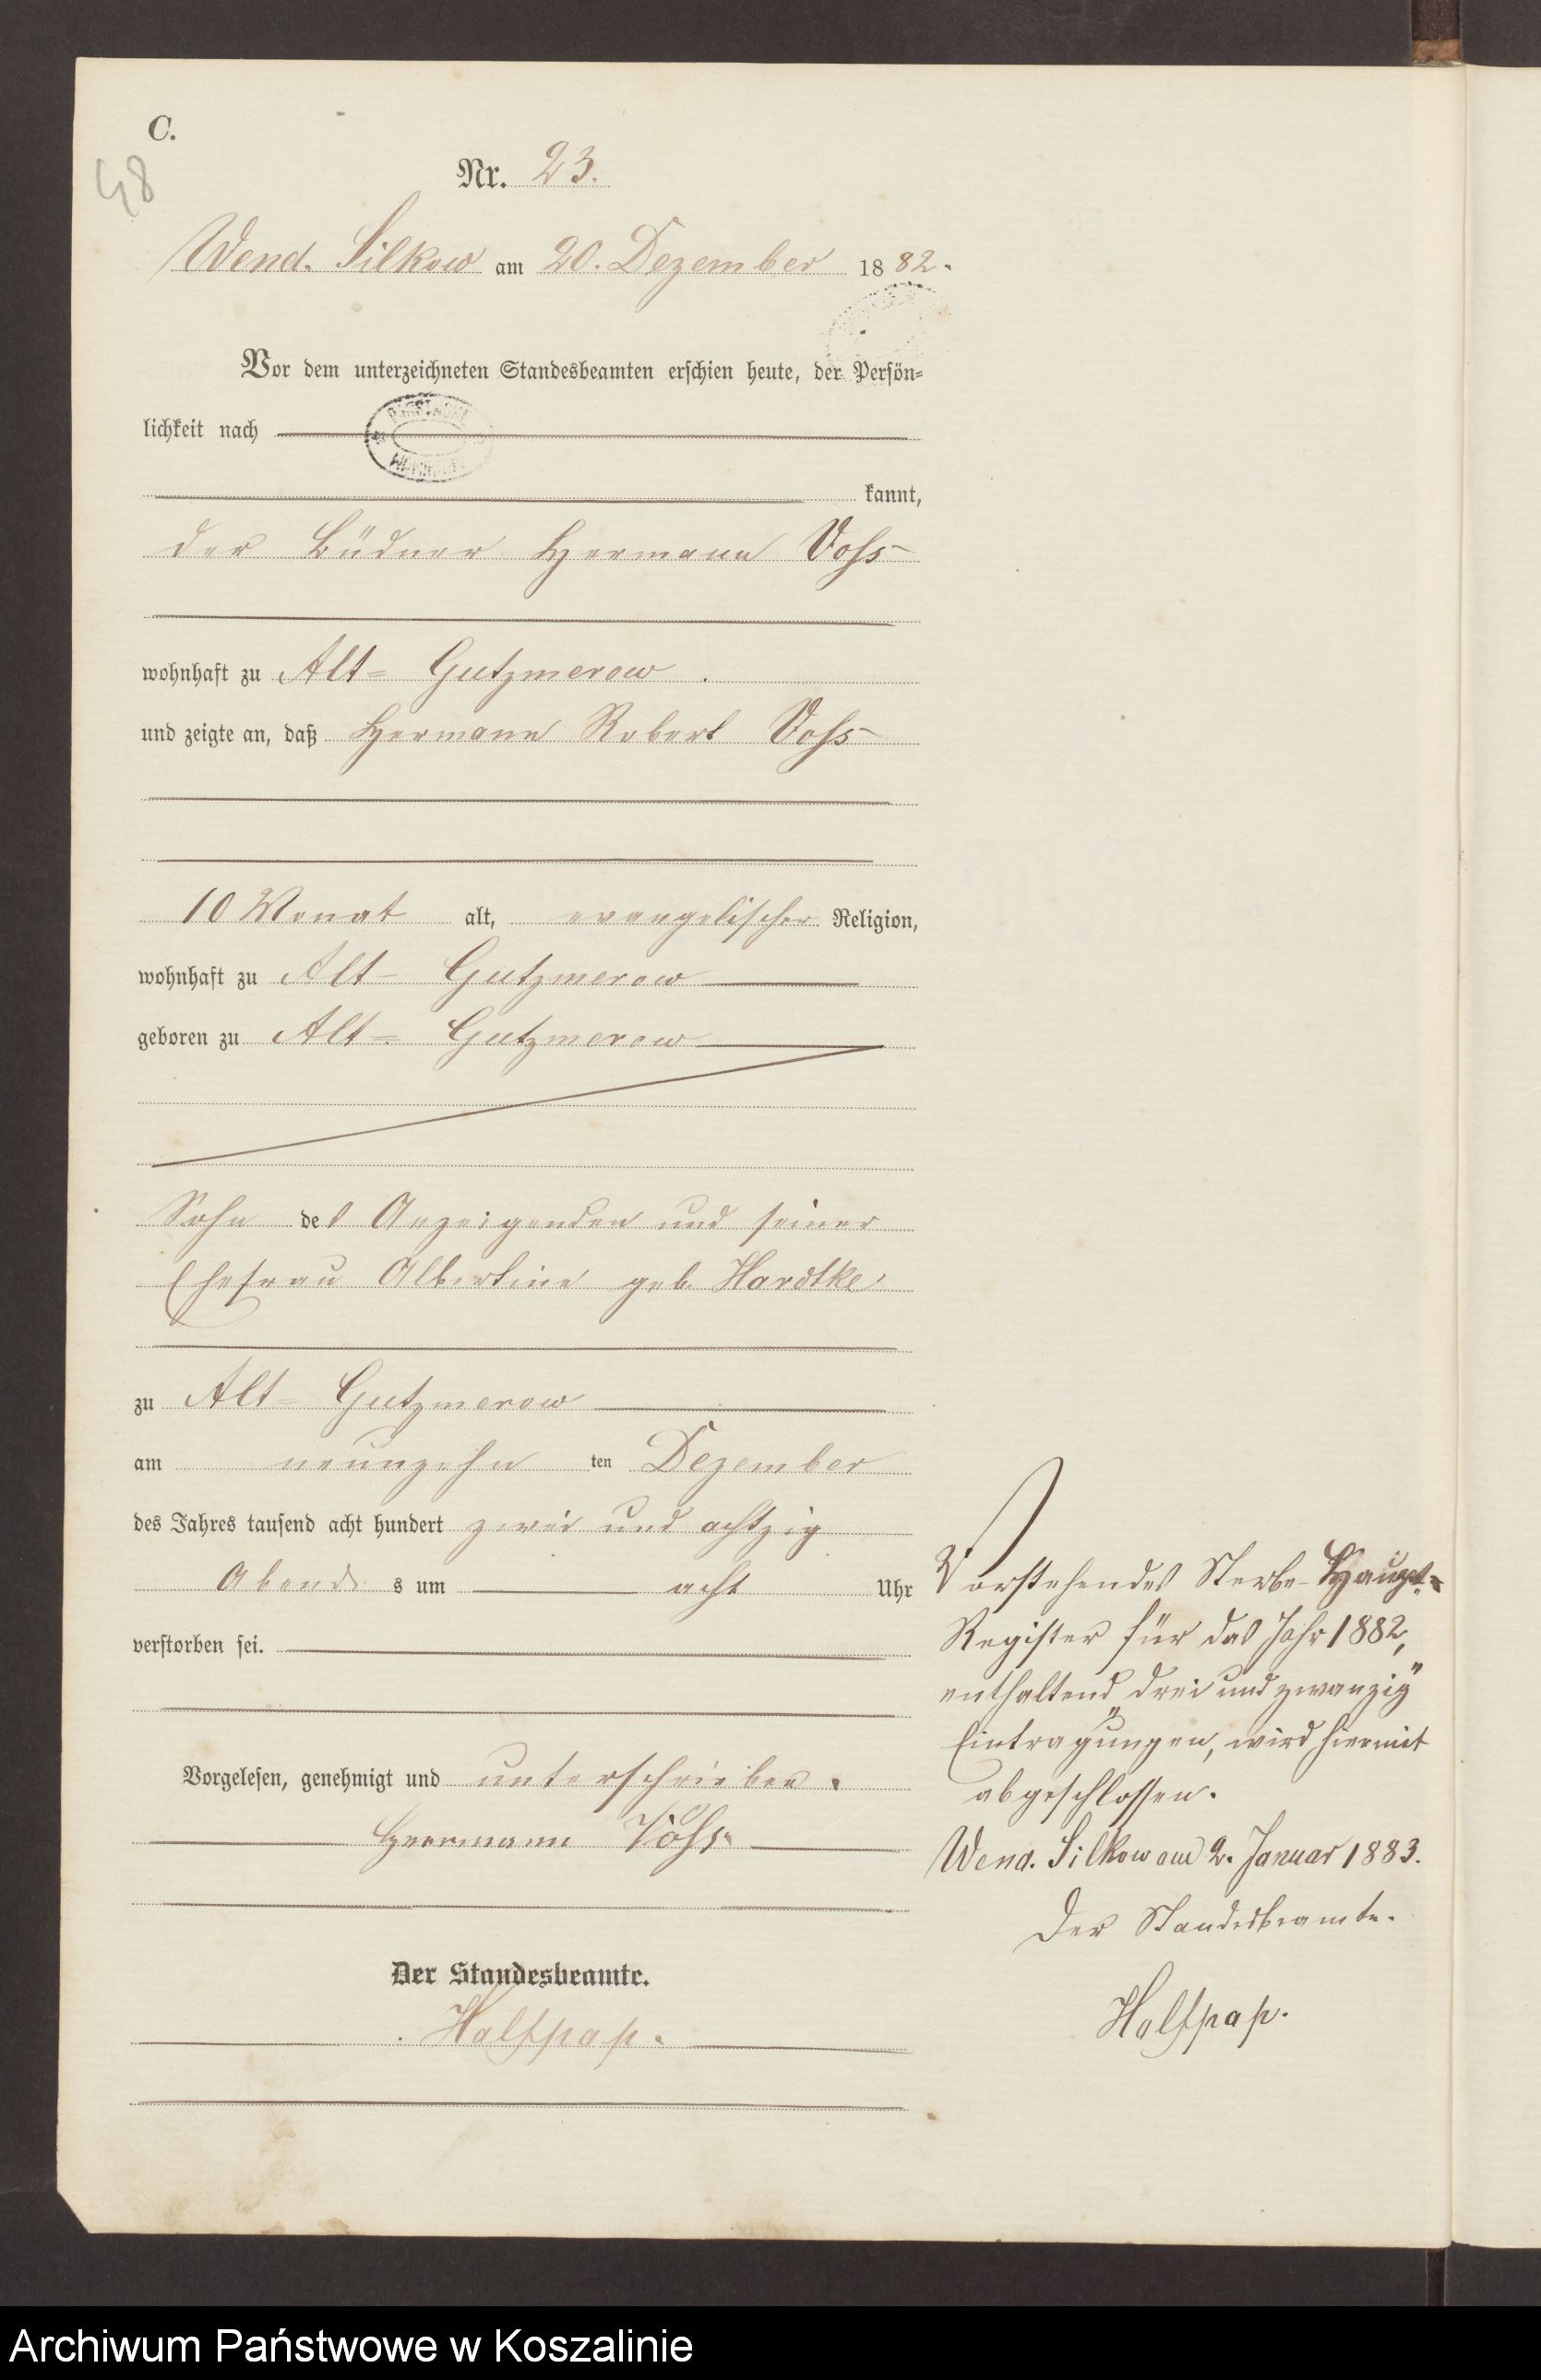 C.
48
Nr. 23.
Wend. Silkow am 20. Dezember 1882.
Vor dem unterzeichneten Standesbeamten erschien heute, der Persön-
lichkeit nach
kannt,
der Büdner Hermann Voss
wohnhaft zu Alt-Gutzmerow.
und zeigte an, daß Hermann Robert Voss
10 Monat alt, evangelischer Religion,
wohnhaft zu Alt-Gutzmerow
geboren zu Alt-Gutzmerow
Sohn des Anzeigenden und seiner
Ehefrau Albertine geb. Hardtke
zu Alt-Gutzmerow
am neunzehn ten Dezember
des Jahres tausend acht hundert zwei und achtzig
Abends um acht Uhr
verstorben sei.
Vorgelesen, genehmigt und unterschrieben.
Heermann Voss.
Der Standesbeamte.
Halfpap.
Vorstehendes Sterbe-Haupt-
Register für das Jahr 1882,
enthaltend „drei und zwanzig"
Eintragungen, wird hiermit
abgeschlossen.
Wend. Silkow am 2. Januar 1883.
Der Standesbeamte.
Halfpap.
Archiwum Państwowe w Koszalinie